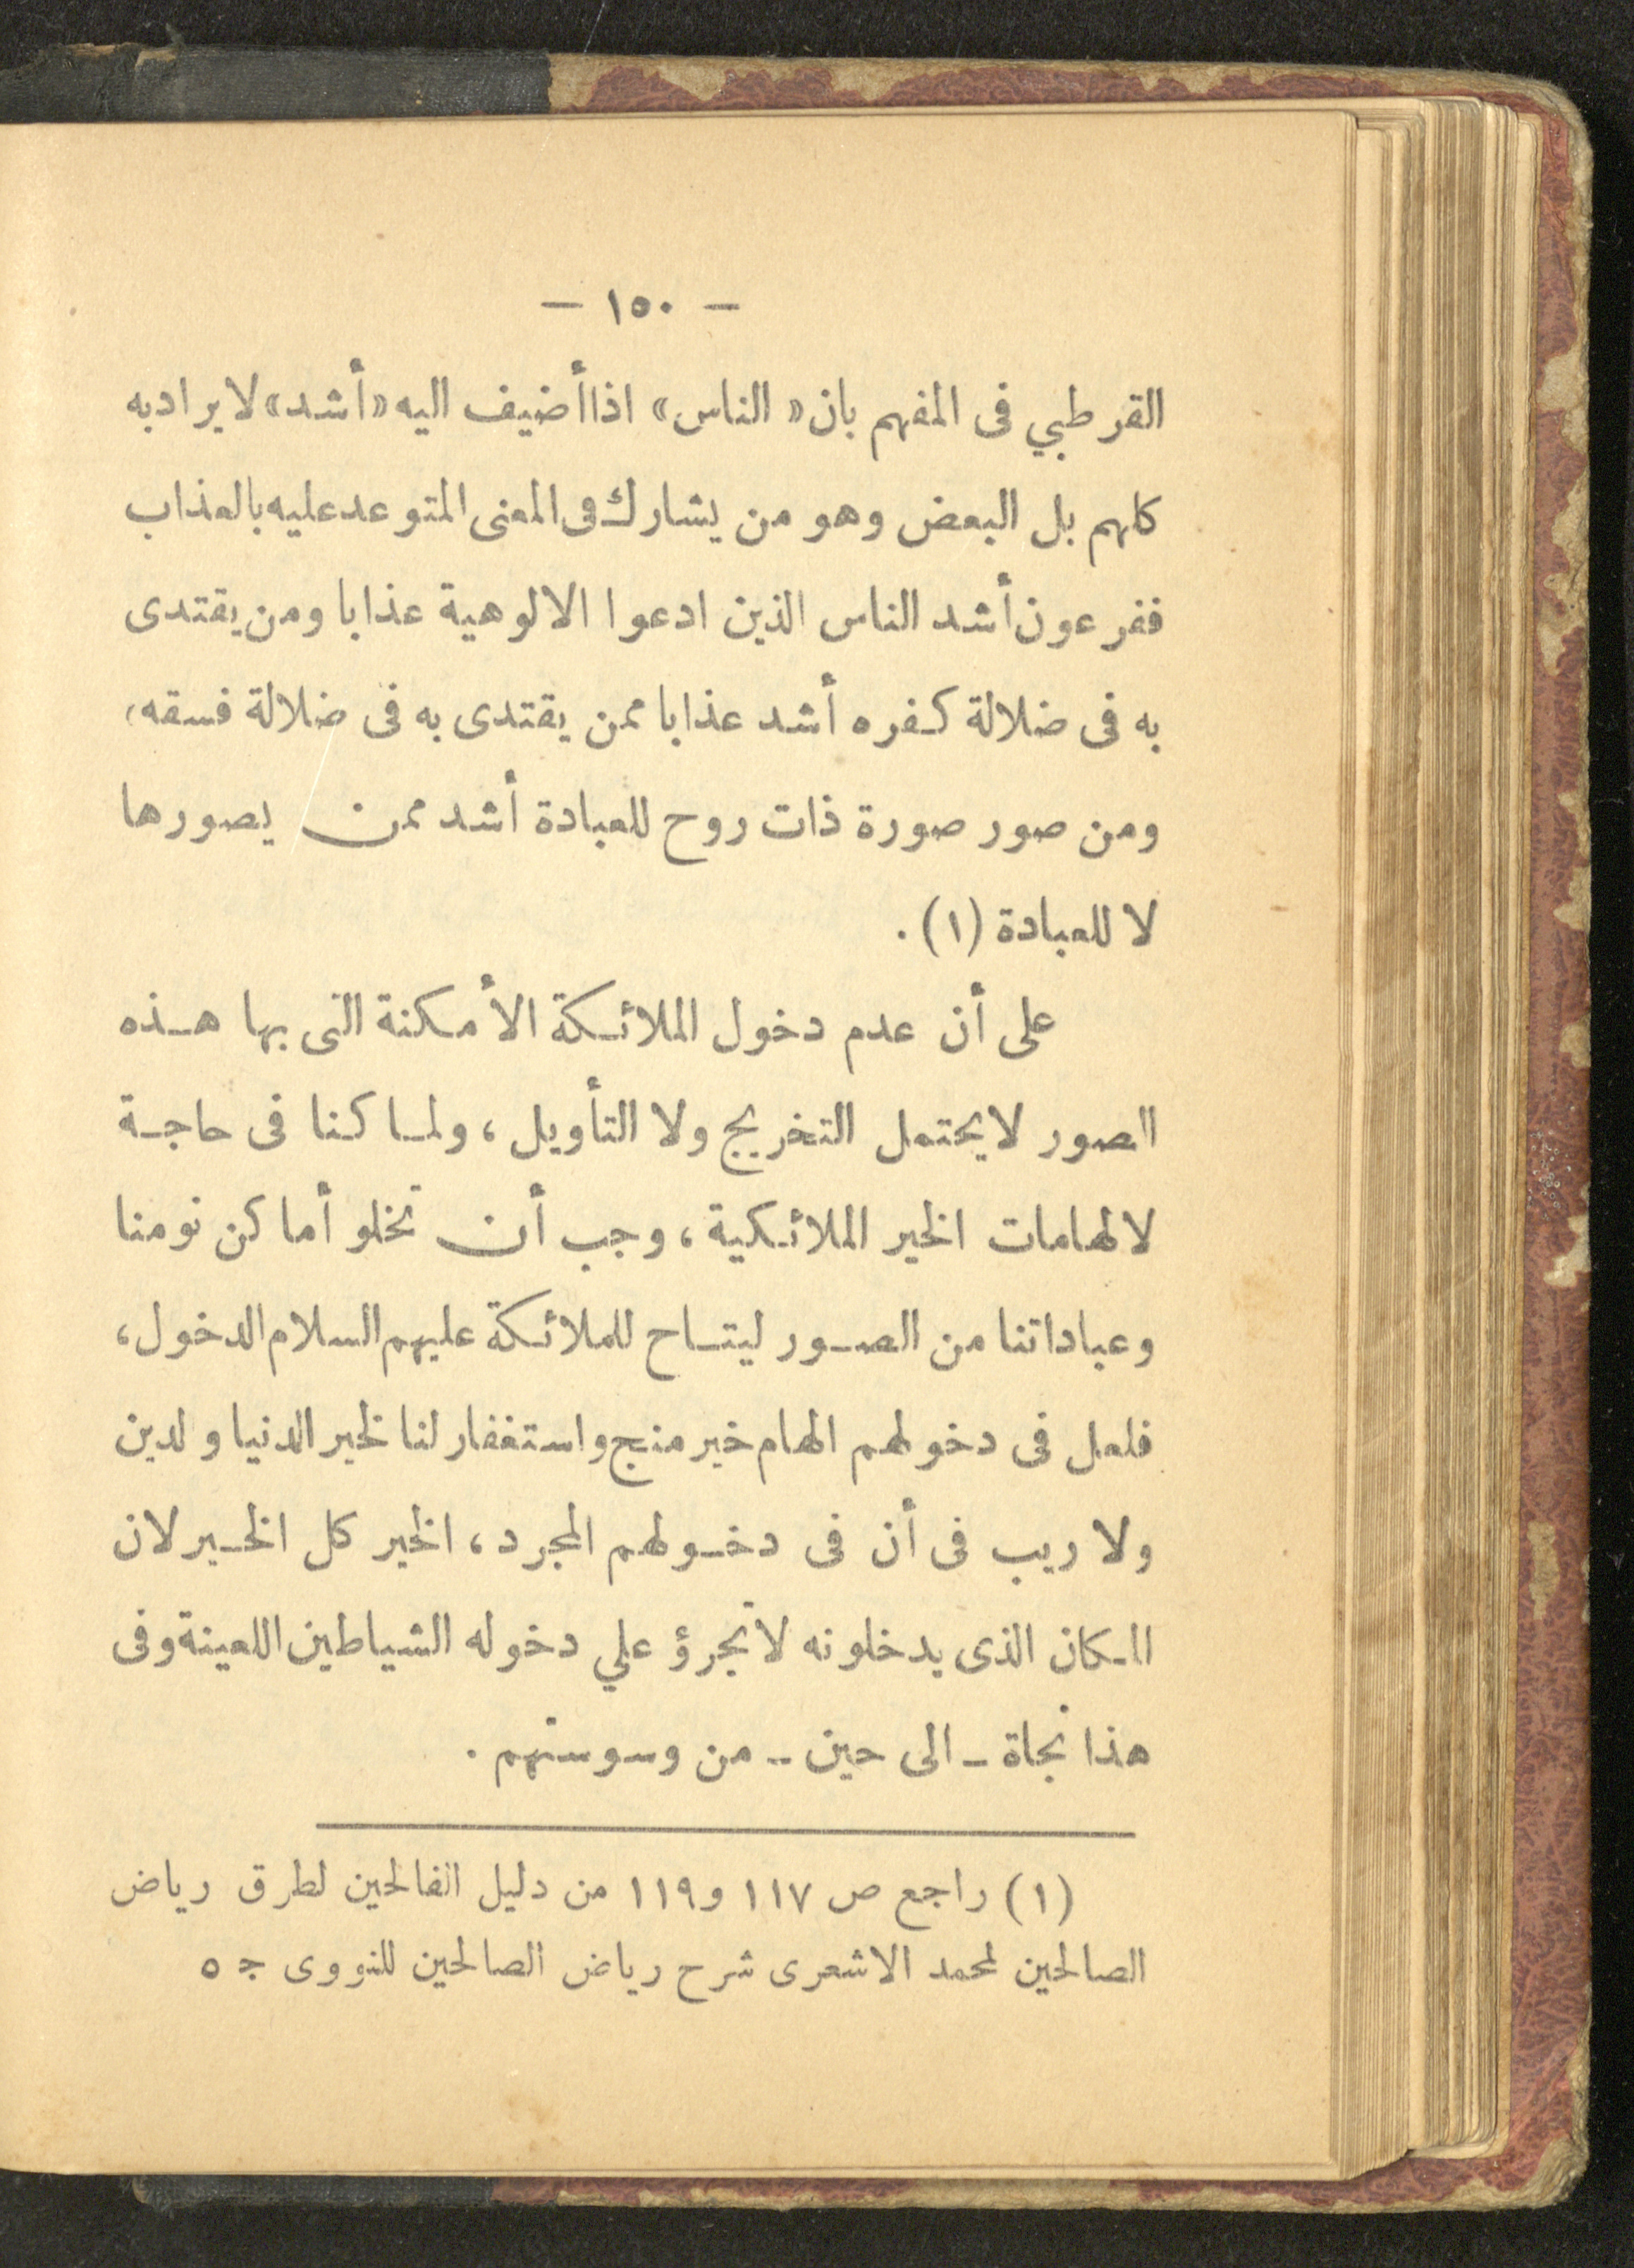 — ١٥٠ —
القرطبي فى المفهم بان « الناس » اذا أضيف اليه « أشد » لا يراد به
كلهم بل البعض وهو من يشارك فى المعنى المتوعد عليه بالعذاب
ففرعون أشد الناس الذين ادعوا الالوهية عذابا ومن يقتدى
به فى ضلالة كفره أشد عذابا ممن يقتدى به فى ضلالة فسقه،
ومن صور صورة ذات روح للعبادة أشد ممن يصورها
لا للعبادة (١) .
على أن عدم دخول الملائكة الأمكنة التى بها هذه
الصور لا يحتمل التخريج ولا التأويل ، ولما كنا فى حاجة
لالهامات الخير الملائكية ، وجب أن تخلو أماكن نومنا
وعباداتنا من الصور ليتاح للملائكة عليهم السلام الدخول ،
فلعل فى دخولهم الهام خير منج واستغفار لنا لخير الدنيا ولدين
ولا ريب فى أن فى دخولهم المجرد ، الخير كل الخير لان
المكان الذى يدخلونه لا تجرؤ علي دخوله الشياطين اللعينة وفى
هذا نجاة – الى حين – من وسوستهم .
(١) راجع ص ١١٧ و ١١٩ من دليل الفالحين لطرق رياض
الصالحين لمحمد الاشعرى شرح رياض الصالحين للنووى ج ٥